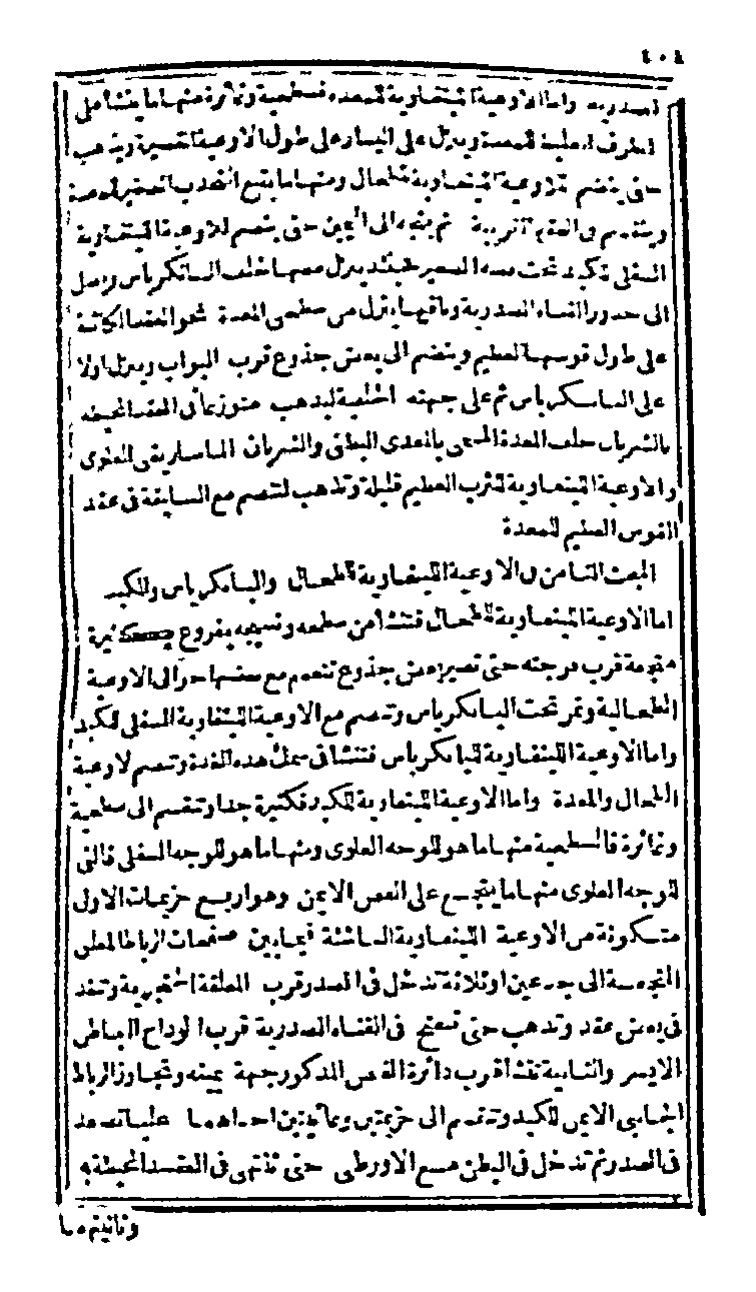 ٤٠٤
الصدرية واما الاوعية الليمفاوية للمعدة فسطحية وغائرة منها ما ينشأ على
الطرف الغليظ للمعدة وينزل على اليسار على طول الاوعية القصيرة ويذهب
حتى ينضم للاوعية الليمفاوية للطحال ومنها ما يتبع التحدب الصغير للمعدة
وينقسم فى العقد القريبة ثم يتجه الى اليمين حتى ينضم للاوعية الليمفاوية
السفلى للكبد تحت المعدة الصغير فحينئذ ينزل معها خلف البانكرياس ويصل
الى جذور القناة الصدرية وباقيها ينزل من سطحى المعدة نحو العقد الكائنة
على طول قوسها العظيم وينضم الى بعض جذوع قرب البواب وينزل اولا
على البانكرياس ثم على جهته الخلفية ليذهب متوزعا فى العقد المحيطة
بالشريان خلف المعدة المسمى بالمعدى البطنى والشريان الماساريقى العلوى
والاوعية الليمفاوية للثرب العظيم قليلة وتذهب لتنضم مع السابقة فى عقد
القوس العظيم للمعدة
المبحث الثامن فى الاوعية الليمفاوية للطحال والبانكرياس وللكبد
اما الاوعية الليمفاوية للطحال فتنشأ من سطحه ونسيجه بفروع كثيرة
متجمعة قرب فرجته حتى تصير بعض جذوع تنضم مع بعضها حوالى الاوعية
الطحالية وتمر تحت البانكرياس وتنضم مع الاوعية الليمفاوية السفلى للكبد
واما الاوعية الليمفاوية للبانكرياس فتنشأ فى سمك هذه الغدة وتنضم لاوعية
الطحال والمعدة واما الاوعية الليمفاوية للكبد فكثيرة جدا وتنقسم الى سطحية
وغائرة فالسطحية منها ما هو للوجه العلوى ومنها ما هو للوجه السفلى فالتى
للوجه العلوى منها ما يتجمع على الفص الايمن وهو اربع حزيمات الاولى
متكونة من الاوعية الليمفاوية الناشئة فيما بين صفحات الرباط المعلق
المتجمعة الى جذعين او ثلاثة تدخل فى الصدر قرب المعلقة الخنجرية وتنفذ
فى بعض عقد وتذهب حتى تنفتح فى القناة الصدرية قرب الوداج الباطن
الايسر والثانية تنشأ قرب دائرة الفص المذكور جهة يمينه وتجاوز الرباط
الجانبى الايمن للكبد وتنقسم الى حزيمتين وغائيتين احداهما عليا تصعد
فى الصدر ثم تدخل فى البطن مع الاورطى حتى تنتهى فى العقد المحيطة به
وثانيتهما